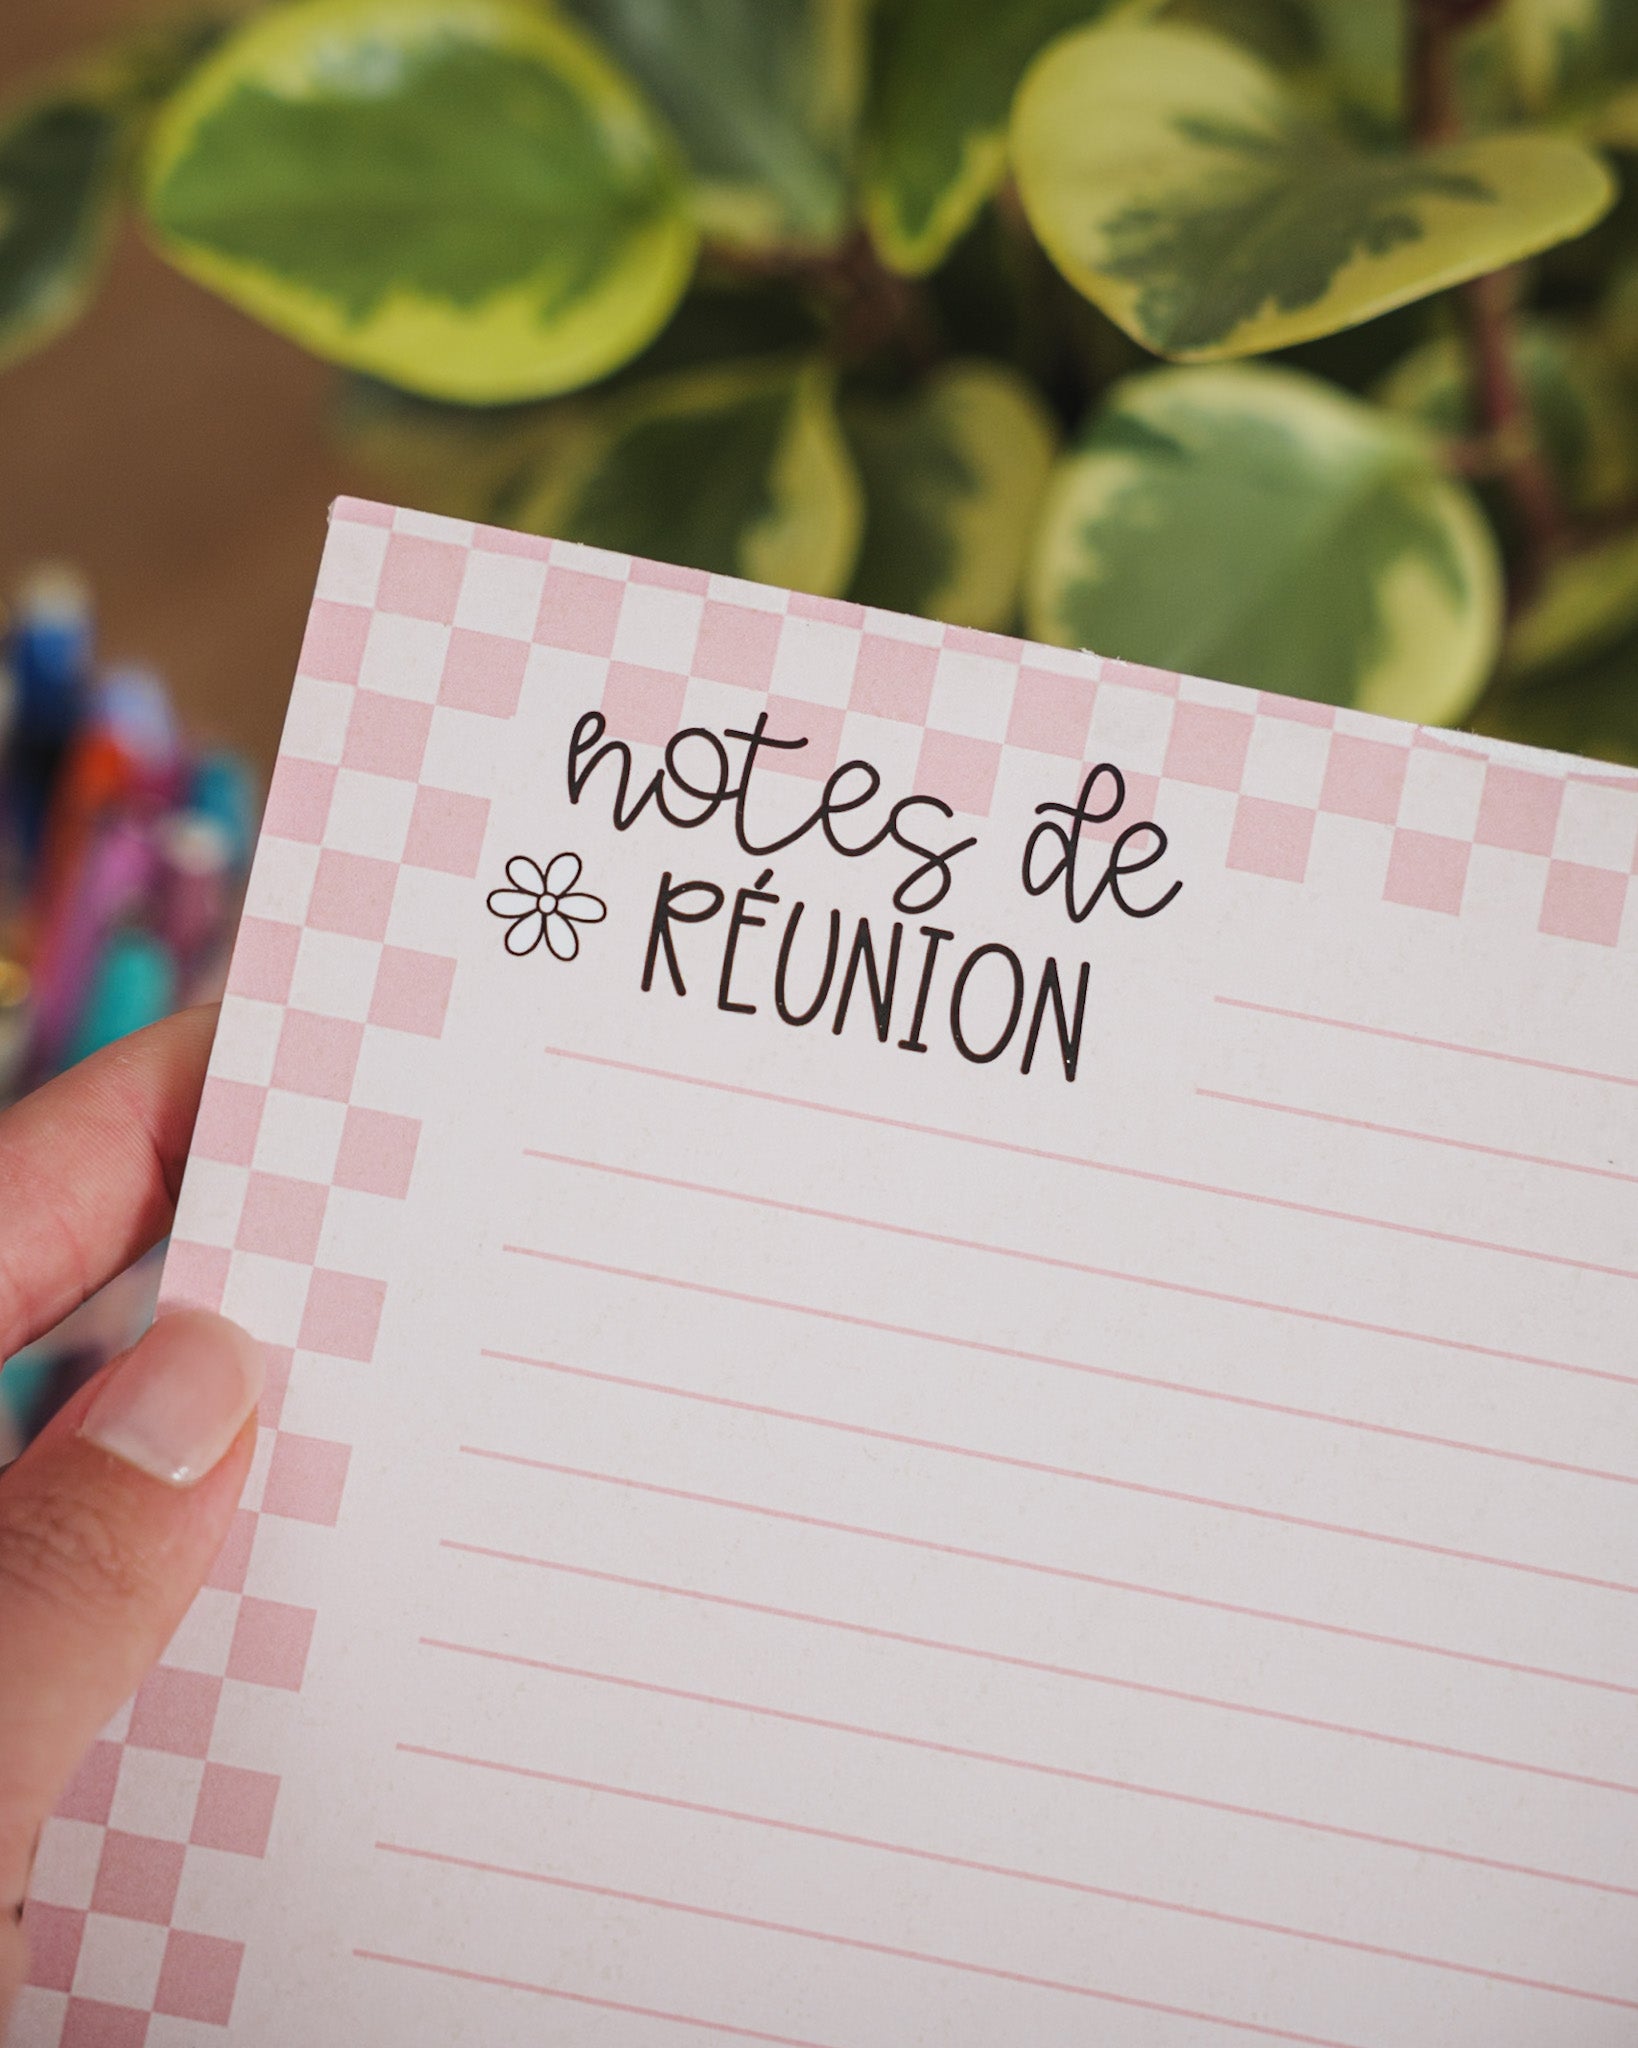 notes de
RÉUNION